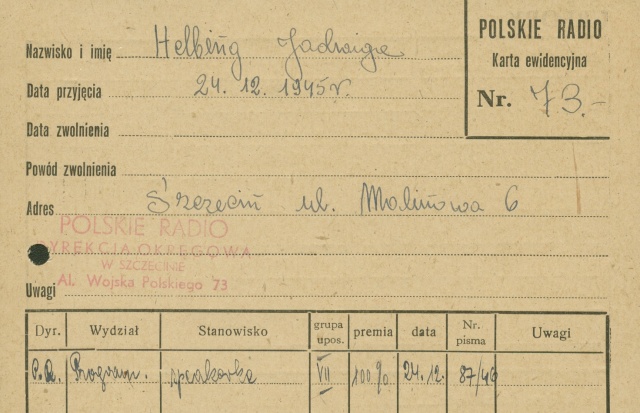 POLSKIE RADIO
Karta ewidencyjna
Nr. 73.-
Nazwisko i imię Helbing Jadwiga
Data przyjęcia 24. 12. 1945 r.
Data zwolnienia
Powód zwolnienia
Adres Szczecin ul. Malinowa 6
POLSKIE RADIO
DYREKCJA OKRĘGOWA
W SZCZECINIE
Al. Wojska Polskiego 73
Uwagi
Dyr. Wydział Stanowisko grupa upos. premia data Nr. pisma Uwagi
P.R. Program. speakerka VII 100% 24.12. 87/46